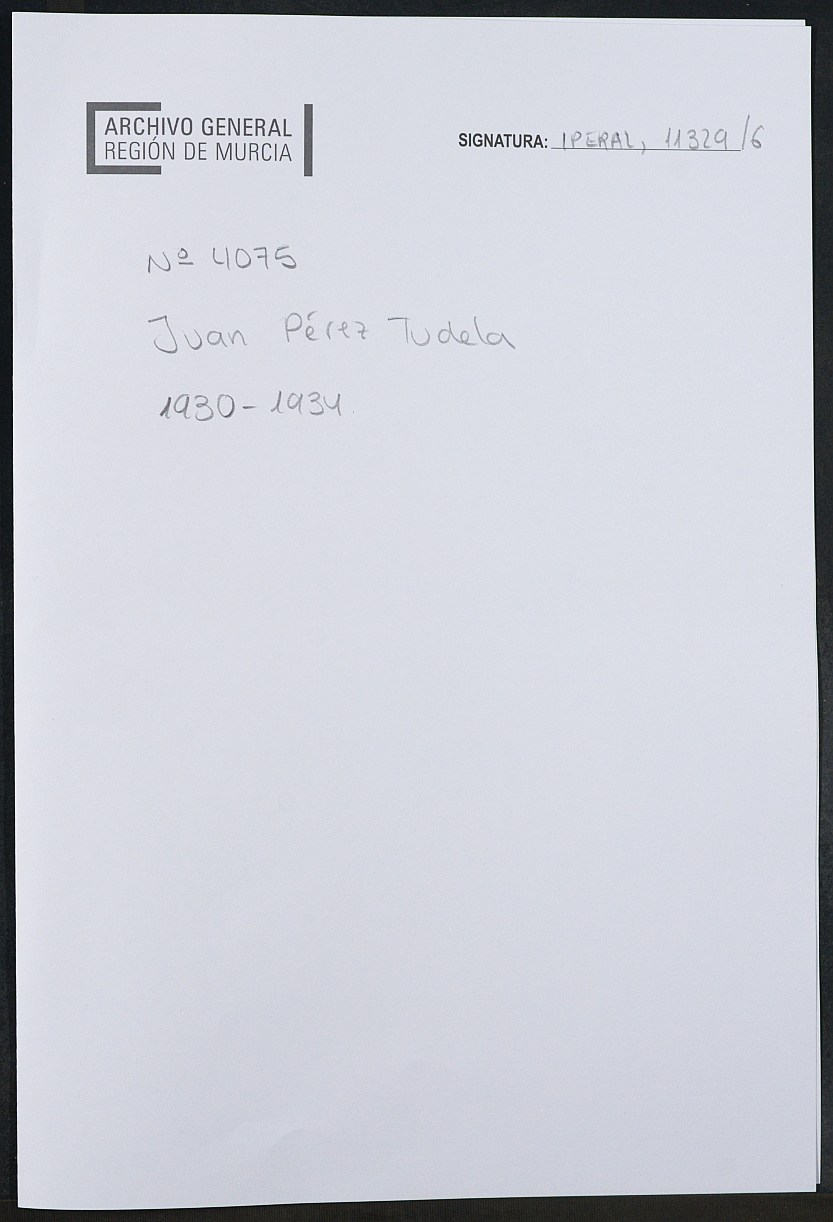 ARCHIVO GENERAL
REGIÓN DE MURCIA
SIGNATURA: IPERAL, 11329/6
Nº 4075
Juan Pérez Tudela
1930-1934.